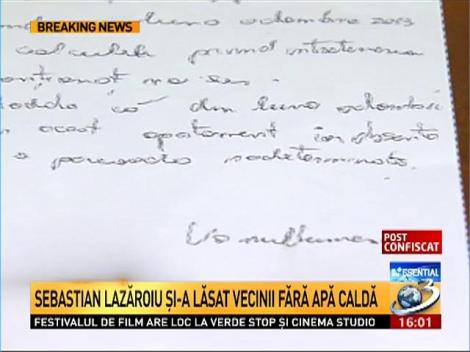 BREAKING NEWS
luna octombrie 2013
calculele privind intretinerea
că din luna octombrie
acest apartament
o perioada nedeterminata.
Va multumesc
POST
CONFISCAT
ESSENTIAL
3
SEBASTIAN LAZĂROIU ȘI-A LĂSAT VECINII FĂRĂ APĂ CALDĂ
FESTIVALUL DE FILM ARE LOC LA VERDE STOP ȘI CINEMA STUDIO
16:01